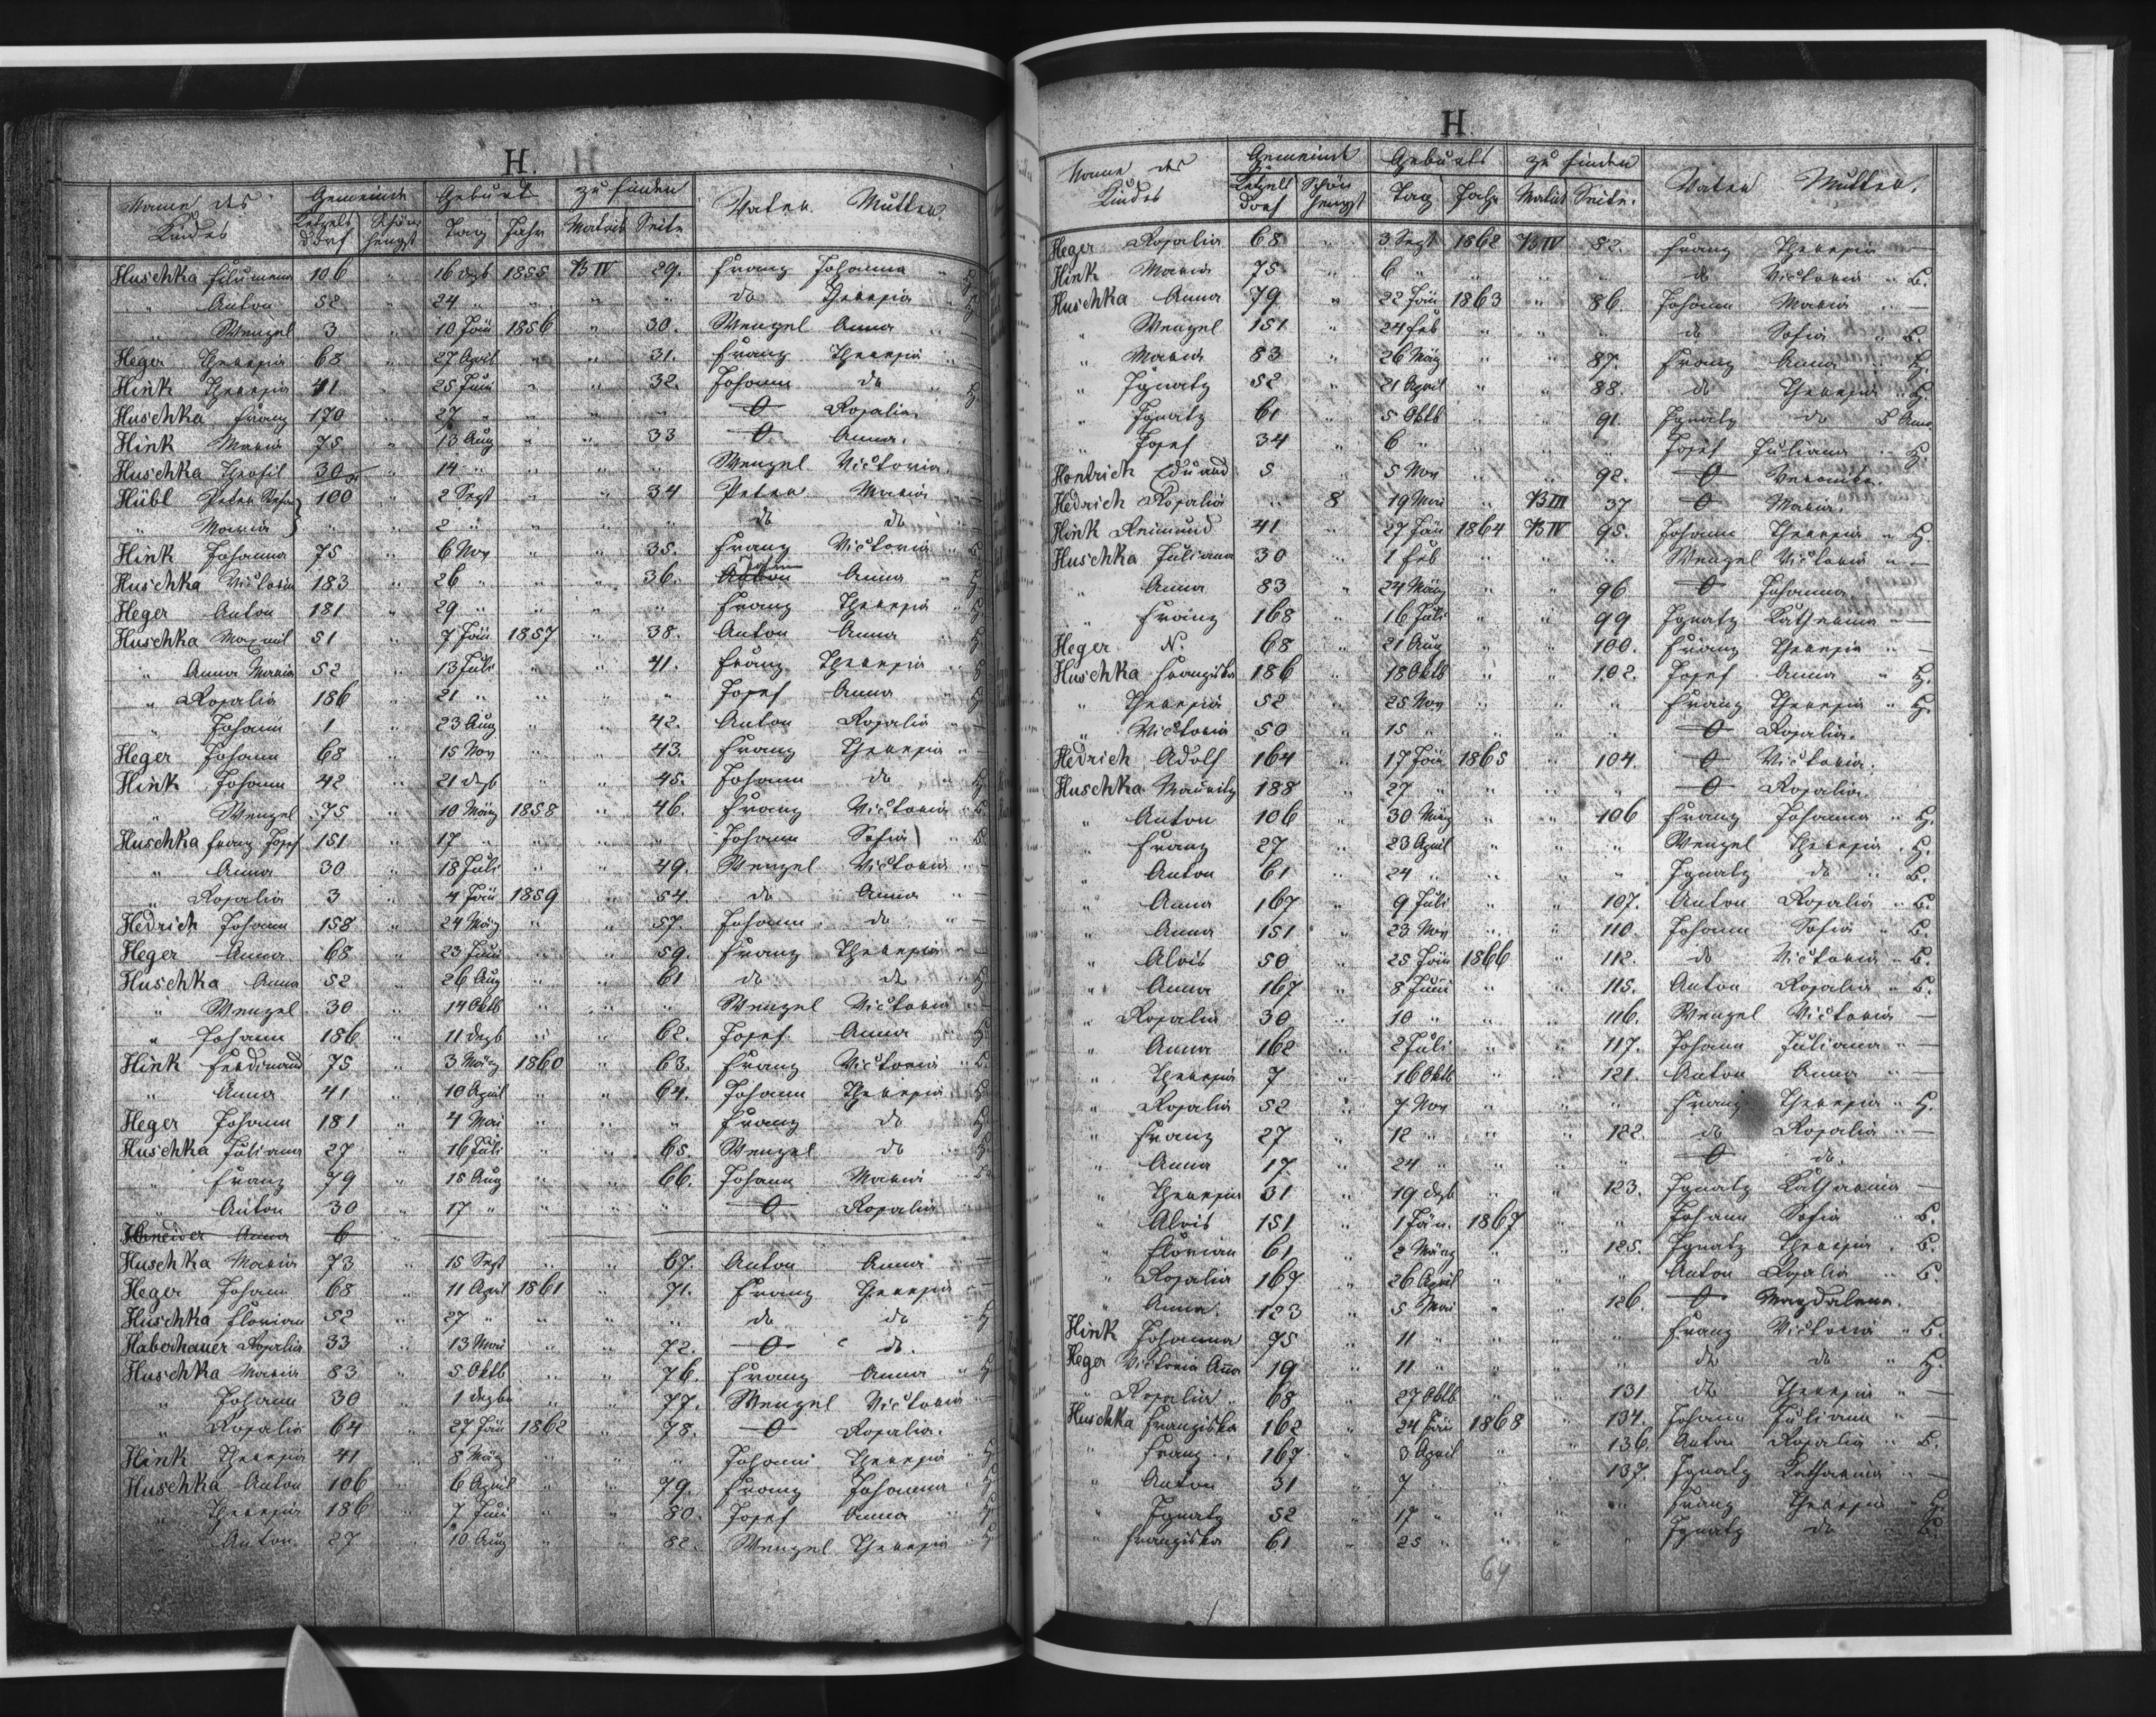 H.
Name des Kindes Gemeinde Geburt zu finden Vater Mutter
Ketzelsdorf Schönhengst Tag Jahr Matrik Seite
Huschka Filumena 106 " 16 dezb 1855 B IV 29. Franz Johanna " H
" Anton 52 " 24 " " " " do Theresia " H
" Wenzel 3 " 10 Jän 1856 " 30. Wenzel Anna "
Heger Theresia 68 " 27 April " " 31. Franz Theresia "
Hink Theresia 41 " 25 Juni " " 32. Johann do " H.
Huschka Franz 170 " 27 " " " " O Rosalia.
Hink Maria 75 " 13 Aug " " 33 O Anna.
Huschka Theofil 30 " 14 " " " " Wenzel Victoria.
Hübl Peter 100 " 2 Sept " " 34 Peter Maria " —
" Maria " " 2 " " " " do do " —
Hink Johanna 75 " 6 Nov " " 35. Franz Victoria " B
Huschka Victoria 183 " 26 " " " 36. Anna " H
Heger Anton 181 " 29 " " " " Franz Theresia " H
Huschka Maxmil 51 " 7 Jän 1857 " 38. Anton Anna " H
" Anna Maria 52 " 13 Juli " " 41. Franz Theresia " H
" Rosalia 186 " 21 " " " " Josef Anna " H
" Johann 1 " 23 Aug " " 42. Anton Rosalia " —
Heger Johann 68 " 15 Nov " " 43. Franz Theresia " —
Hink Johann 42 " 21 dezb " " 45. Johann do " H
" Wenzel 75 " 10 März 1858 " 46. Franz Victoria " B.
Huschka Franz Josef 151 " 17 " " " " Johann Sofia " B
" Anna 30 " 18 Juli " " 49. Wenzel Victoria " —
" Rosalia 3 " 4 Jän 1859 " 54. do Anna " —
Hedrich Johann 158 " 24 März " " 57. Johann do " —
Heger Anna 68 " 23 Juni " " 59. Franz Theresia " —
Huschka Anna 52 " 26 Aug " " 61 do do " H
" Wenzel 30 " 14 Oktb " " " Wenzel Victoria " —
" Johann 186 " 11 dezb " " 62. Josef Anna " H
Hink Ferdinand 75 " 3 März 1860 " 63. Franz Victoria " B.
" Anna 41 " 10 April " " 64. Johann Theresia " H
Heger Johann 181 " 4 Mai " " " Franz do " H
Huschka Juliana 27 " 16 Juli " " 65. Wenzel do " H
" Franz 79 " 15 Aug " " 66. Johann Maria "
" Anton 30 " 17 " " " " O Rosalia "
Anna 6 "
Huschka Maria 73 " 15 Sept " " 67. Anton Anna " —
Heger Johann 68 " 11 April 1861 " 71. Franz Theresia " —
Huschka Florian 52 " 27 " " " " do do " H
Haberhauer Rosalia 33 " 13 Mai " " 72. O do.
Huschka Maria 83 " 5 Oktb " " 76. Franz Anna " H
" Johann 30 " 1 dezbr " " 77. Wenzel Victoria " —
" Rosalia 64 " 27 Jän 1862 " 78. O Rosalia.
Hink Theresia 41 " 8 März " " " Johann Theresia " H
Huschka Anton 106 " 6 April " " 79. Franz Johanna " H
" Theresia 186 " 7 Juni " " 80. Josef Anna " H
" Anton 27 " 10 Aug " " 82. Wenzel Theresia " H
H.
Name des Kindes Gemeinde Geburts zu finden Vater Mutter.
Ketzelsdorf Schönhengst Tag Jahr Matrik Seite.
Heger Rosalia 68 " 3 Sept 1862 B IV 82. Franz Theresia —
Hink Maria 75 " 6 " " " " do Victoria " B.
Huschka Anna 79 " 22 Jän 1863 " 86. Johann Maria " —
" Wenzel 151 " 24 Feb " " " do Sofia " B.
" Maria 83 " 26 März " " 87. Franz Anna " H.
" Ignatz 52 " 21 April " " 88. do Theresia " H.
" Ignatz 61 " 5 Oktb " " 91 Ignatz do B Anna
" Josef 34 " 6 " " " " Josef Juliana " H
Hontrich Eduard 5 " 5 Nov " " 92. O Veronika.
Hedrich Rosalia " 8 19 Mai " B III 37 O Maria.
Hink Reimund 41 " 27 Jän 1864 B IV 95. Johann Theresia " H.
Huschka Juliana 30 " 1 Feb " " " Wenzel Victoria " —
" Anna 83 " 24 März " " 96 O Johanna.
" Franz 168 " 16 Juli " " 99 Ignatz Katherina " —
Heger N. 68 " 21 Aug " " 100. Franz Theresia " —
Huschka Franziska 186 " 18 Oktb " " 102. Josef Anna " H.
" Theresia 52 " 25 Nov " " " Franz Theresia " H.
" Victoria 50 " 15 " " " " O Rosalia.
Hedrich Adolf 164 " 17 Jän 1865 " 104. O Victoria.
Huschka Mauritz 188 " 27 " " " " O Rosalia.
" Anton 106 " 30 März " " 106 Franz Johanna " H.
" Franz 27 " 23 April " " " Wenzel Theresia " H.
" Anton 61 " 24 " " " " Ignatz do " B.
" Anna 167 " 9 Juli " " 107. Anton Rosalia " B.
" Anna 151 " 23 Nov " " 110. Johann Sofia " B.
" Alois 50 " 25 Jän 1866 " 112. do Victoria " B.
" Anna 167 " 8 Juni " " 115. Anton Rosalia " B.
" Rosalia 30 " 10 " " " 116. Wenzel Victoria —
" Anna 162 " 2 Juli " " 117. Johann Juliana " —
" Theresia 7 " 16 Oktb " " 121. Anton Anna " —
" Rosalia 52 " 7 Nov " " " Franz Theresia " H.
" Franz 27 " 12 " " " 122. do Rosalia " —
" Anna 17 " 24 " " " " O do.
" Theresia 31 " 19 dezb " " 123. Ignatz Katharina —
" Alois 151 " 1 Jän. 1867 " " Johann Sofia " B.
" Florian 61 " 2 März " " 125. Ignatz Theresia " B.
" Rosalia 167 " 26 April " " " Anton Rosalia " B.
" Anna 123 " 5 Mai " " 126. O Magdalena.
Hink Johanna 75 " 11 " " " " Franz Victoria " B.
Heger Victoria Anna 19 " 11 " " " " do do " H.
" Rosalia 68 " 27 Oktb " " 131 do Theresia " —
Huschka Franziska 162 " 24 Jän 1868 " 134. Johann Juliana " —
" Franz 167 " 3 April " " 136. Anton Rosalia " B.
" Anton 31 " 7 " " " 137. Ignatz Katharina " —
" Ignatz 52 " 17 " " " " Franz Theresia " H.
" Franziska 61 " 25 " " " " Ignatz do " B.
64